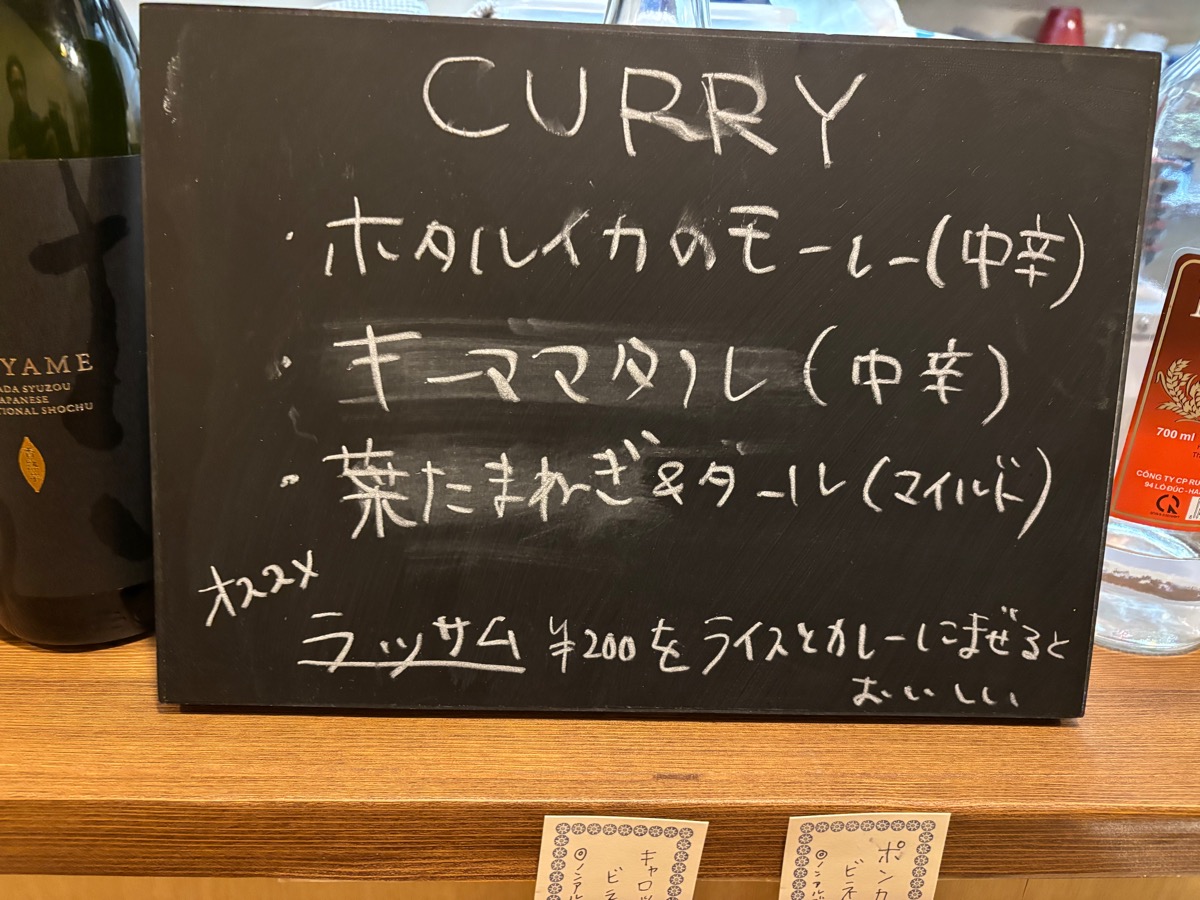 CURRY
・ホタルイカのモーレー(中辛)
・キーママタル(中辛)
・葉たまねぎ&ダール(マイルド)
オススメ
ラッサム ¥200をライスとカレーにまぜると
おいしい
YAME
ADA SYUZOU
JAPANESE
TIONAL SHOCHU
700 ml
CÔNG TY CP RU
94 LÒ ĐÚC - HA
キャロッ
ビネ
◎ノンアル
ポンカ
ビネ
◎ノンアル